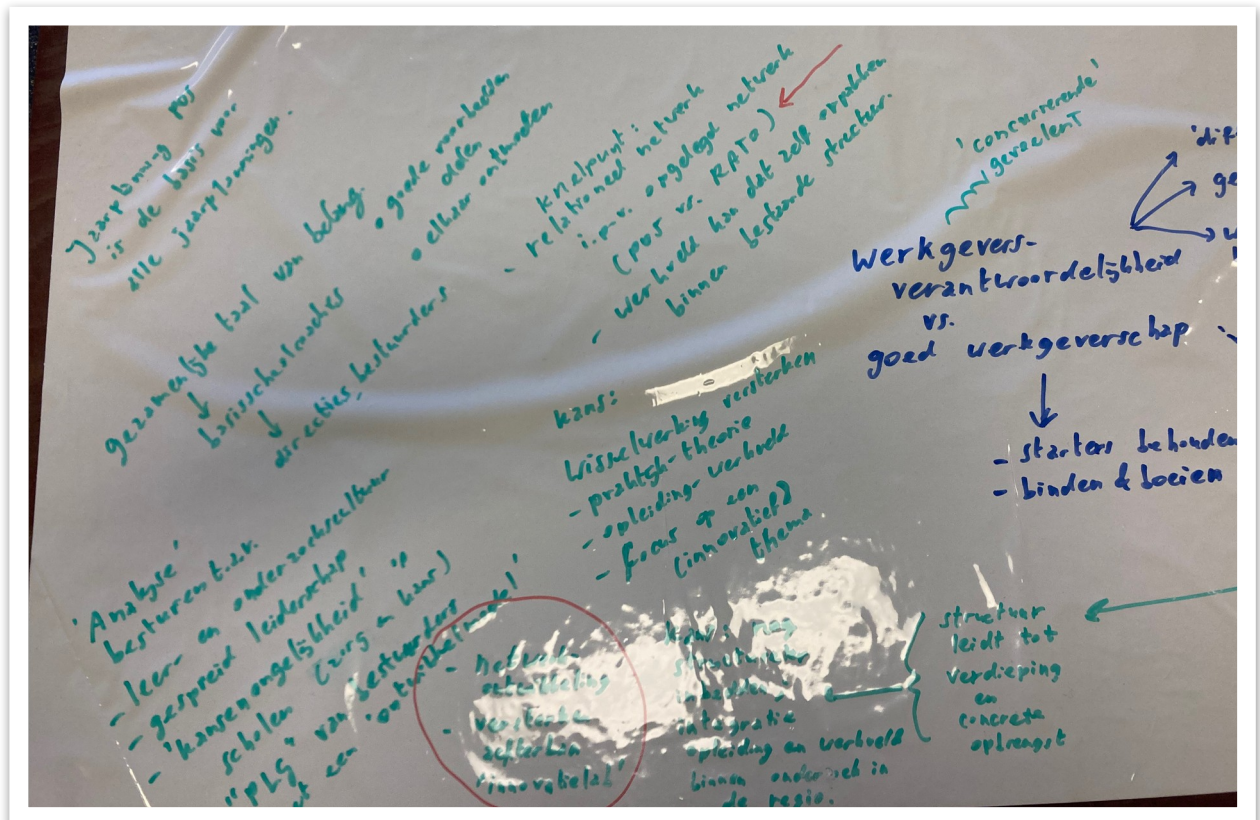 Jaarplanning pos
is de basis voor
alle jaarplanningen.
gezamenlijke taal van belang.
↓
basisschoolcoaches
↓
directies, bestuurders
• goede voorbeelden
delen
• elkaar ontmoeten
knelpunt:
- relationeel netwerk
i.p.v. opgelegd netwerk
(pos vs. RATO)
- werkveld kan dat zelf oppakken
binnen bestaande structuur.
'concurrerende'
gevoelens
werkgevers-
verantwoordelijkheid
vs.
goed werkgeverschap
↓
- starters behouden
- binden & boeien
kans:
Wisselwerking versterken
- praktijk-theorie
- opleiding-werkveld
- focus op een
(innovatief)
thema
'Analyse'
besturen t.a.v.
- leer en onderzoekscultuur
- gespreid leiderschap
- 'kansenongelijkheid' op
scholen (zorg en kans)
"PLG" van bestuurders
een 'ontwikkelmodel'
- Netwerk
ontwikkeling
- versterken
'innovatielab'
kans: mag
structureler
integratie
opleiding en werkveld
binnen onderzoek in
de regio.
structuur
leidt tot
verdieping
en
concrete
opbrengst